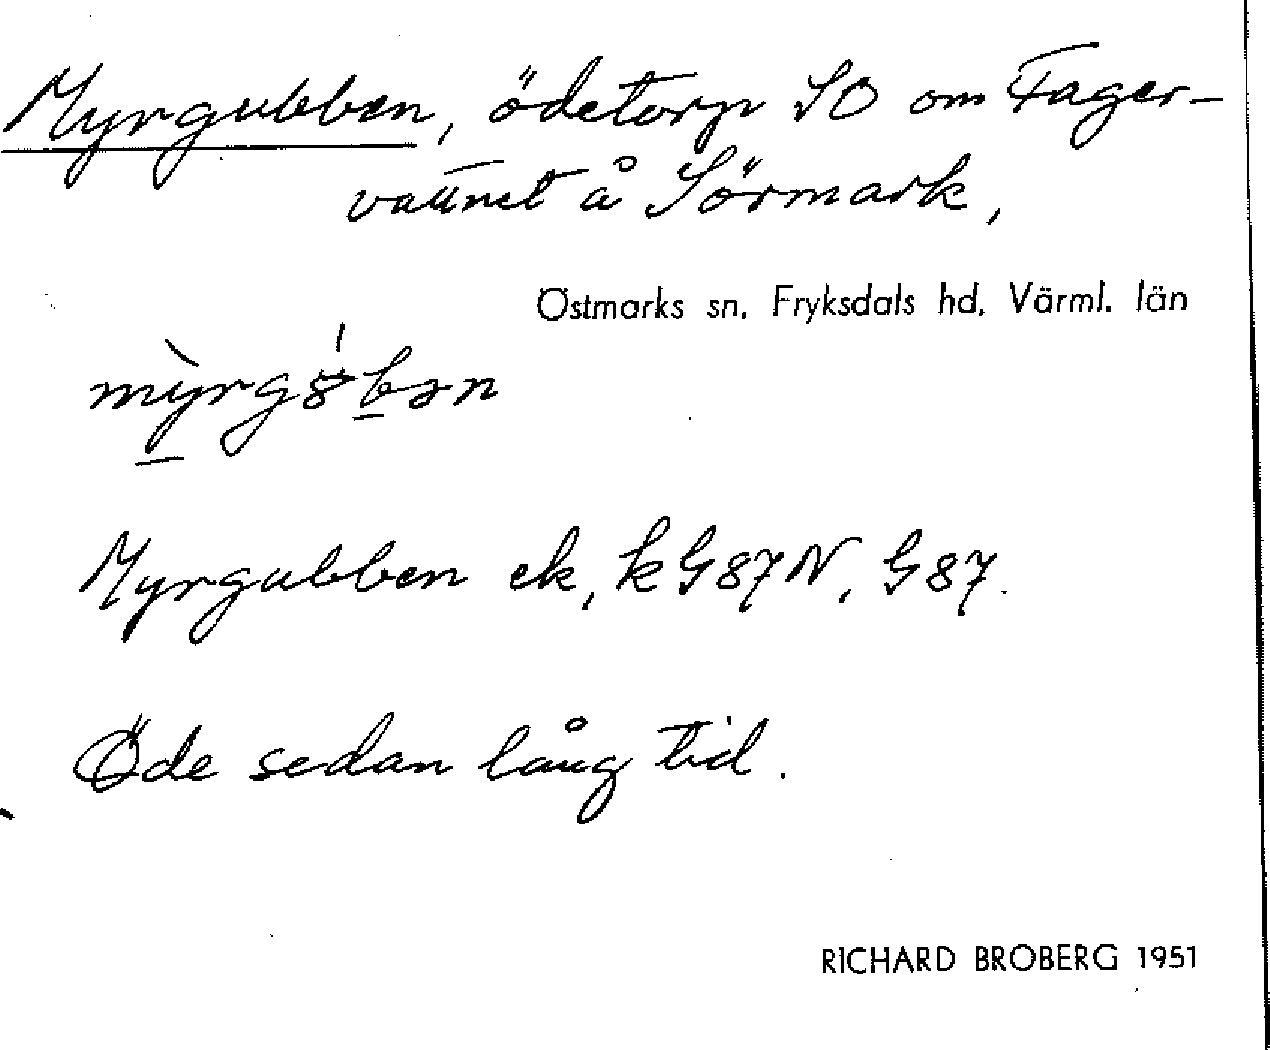 Myrgubben, ödetorp SO om Fager-
vattnet å Sörmark,
Östmarks sn. Fryksdals hd. Värml. län
Myrgubben ek, k G87N, G87.
Öde sedan lång tid.
RICHARD BROBERG 1951